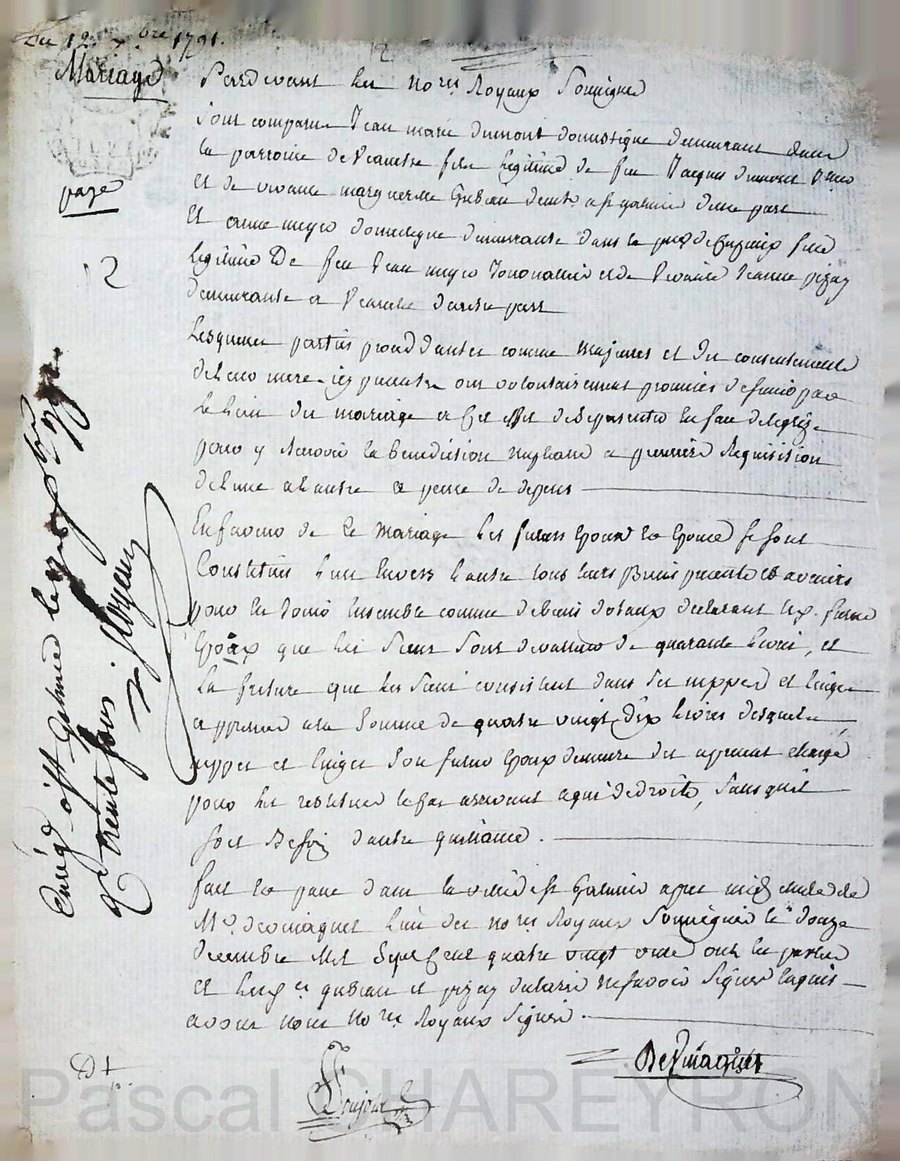 Du 12 Xbre 1791.
Mariage
Pardevant les nores Royaux Soussignés
sont comparus Jean marie dumont domestique demeurant dans
la parroisse de Veauche fils legitime de feu Jacques dumont
et de vivante marguerite Gubian de st galmier d'une part
Et anne domestique demeurante dans la psse de fille
legitime De feu Jean et de Vivante Jeanne pizay
demeurante a Veauche d'autre part
Lesquelles parties procedantes comme majeures et du consentement
de leurs mere icy presentes ont volontairement promises de s'unir par
le Lien du mariage a cet effet de se presenter en face d'eglise
pour y recevoir la benediction nuptiale a premiere Requisition
de l'une a l'autre a peine de depens
En faveur de ce mariage les futurs Epoux et Epouse se sont
Constitués l'un Envers l'autre tous leurs Biens presents et avenirs
pour En jouir Ensemble comme de biens dotaux declarant le futur
Epoux que les siens sont de valeur de quarante livres, et
la future que les siens consistent dans ses nippes et linges
appretiés a la Somme de quatre vingt dix livres desquels
nippes et linges Son futur Epoux demeure des a present chargé
pour les restituer le cas arrivant a qui de droits, sans qu'il
soit Besoin d'autre quittance.
fait et passé dans la ville de st Galmier apres midy etude de
Me. desmaquet l'un des nores Royaux Soussignés le douze
decembre Mil Sept Cent quatre vingt onze ont les parties
et les gubian et pizay declaré ne savoir Signer enquis
avons nous nores Royaux Signés.
paze
12
Enrég. à st Galmier le
Rt trente sous
D +